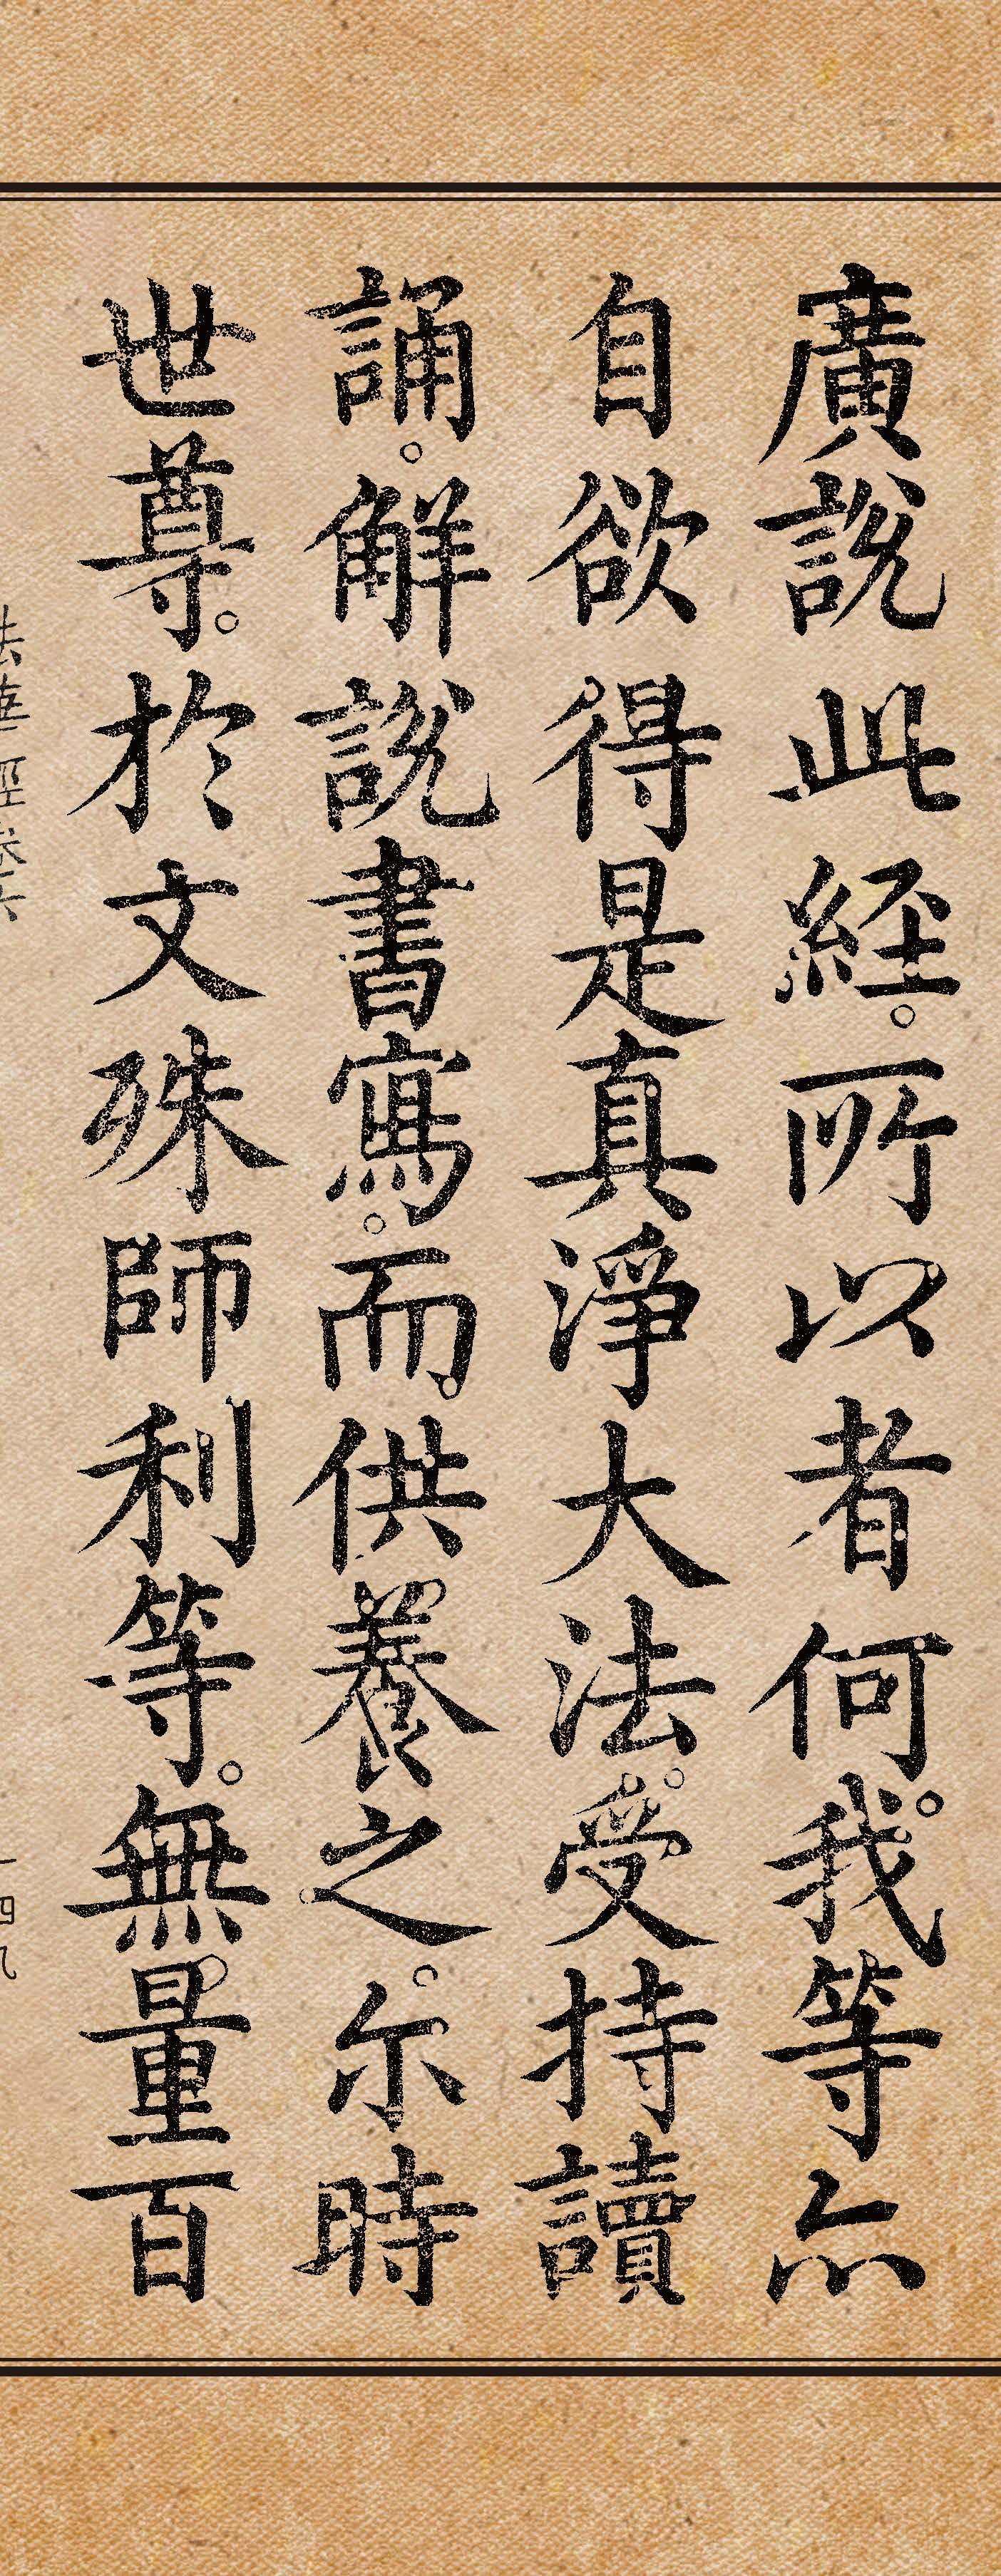 廣說此経。所以者何。我等亦
自欲得是真淨大法。受持讀
誦。解說書寫。而供養之。尔時
世尊。於文殊師利等。無量百